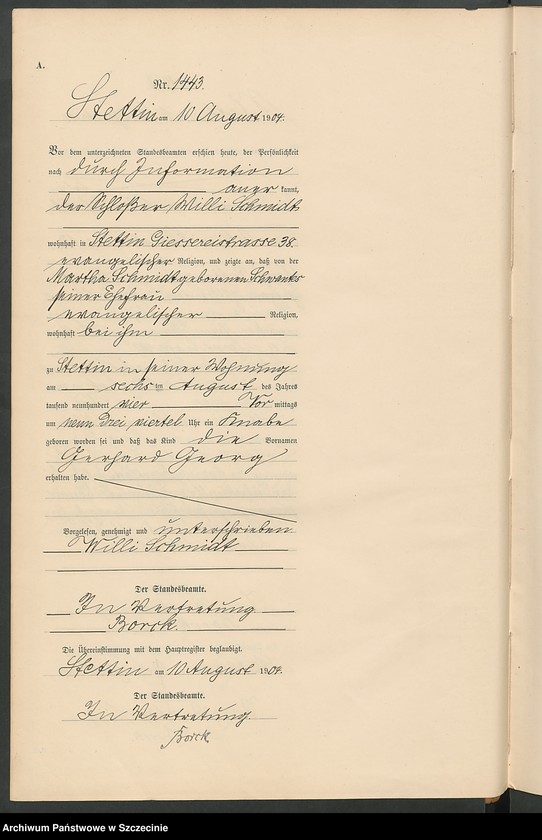 A.
Nr. 1443.
Stettin am 10 August 1904.
Vor dem unterzeichneten Standesbeamten erschien heute, der Persönlichkeit
nach durch Information
aner kannt,
der Schloßer Willi Schmidt
wohnhaft in Stettin Giessereistrasse 38
evangelischer Religion, und zeigte an, daß von der
Martha Schmidt geborenen Schwantz
seiner Ehefrau
evangelischer Religion,
wohnhaft bei ihm
zu Stettin in seiner Wohnung
am sechs ten August des Jahres
tausend neunhundert vier Vor mittags
um neun drei viertel Uhr ein Knabe
geboren worden sei und daß das Kind die Vornamen
Gerhard Georg
erhalten habe.
Vorgelesen, genehmigt und unterschrieben
Willi Schmidt
Der Standesbeamte.
In Vertretung
Borck.
Die Übereinstimmung mit dem Hauptregister beglaubigt.
Stettin am 10 August 1904.
Der Standesbeamte.
In Vertretung
Borck
Archiwum Państwowe w Szczecinie